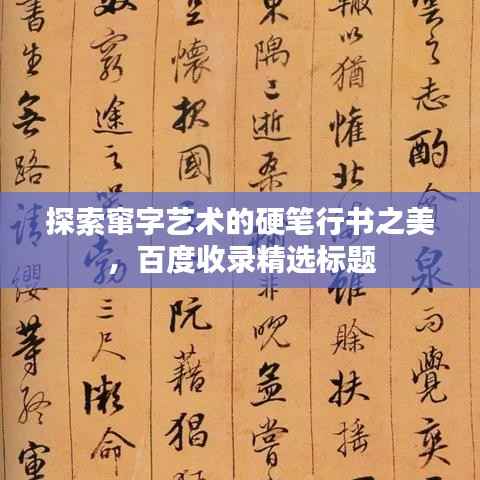 探索窜字艺术的硬笔行书之美
，百度收录精选标题
雲之志酌貪泉而覺爽
轍以猶懽北雖賒扶搖
東隅已逝桑非晚孟嘗
懷報國阮藉猖
窮途之哭勃三尺微命
書生無路請纓等終軍